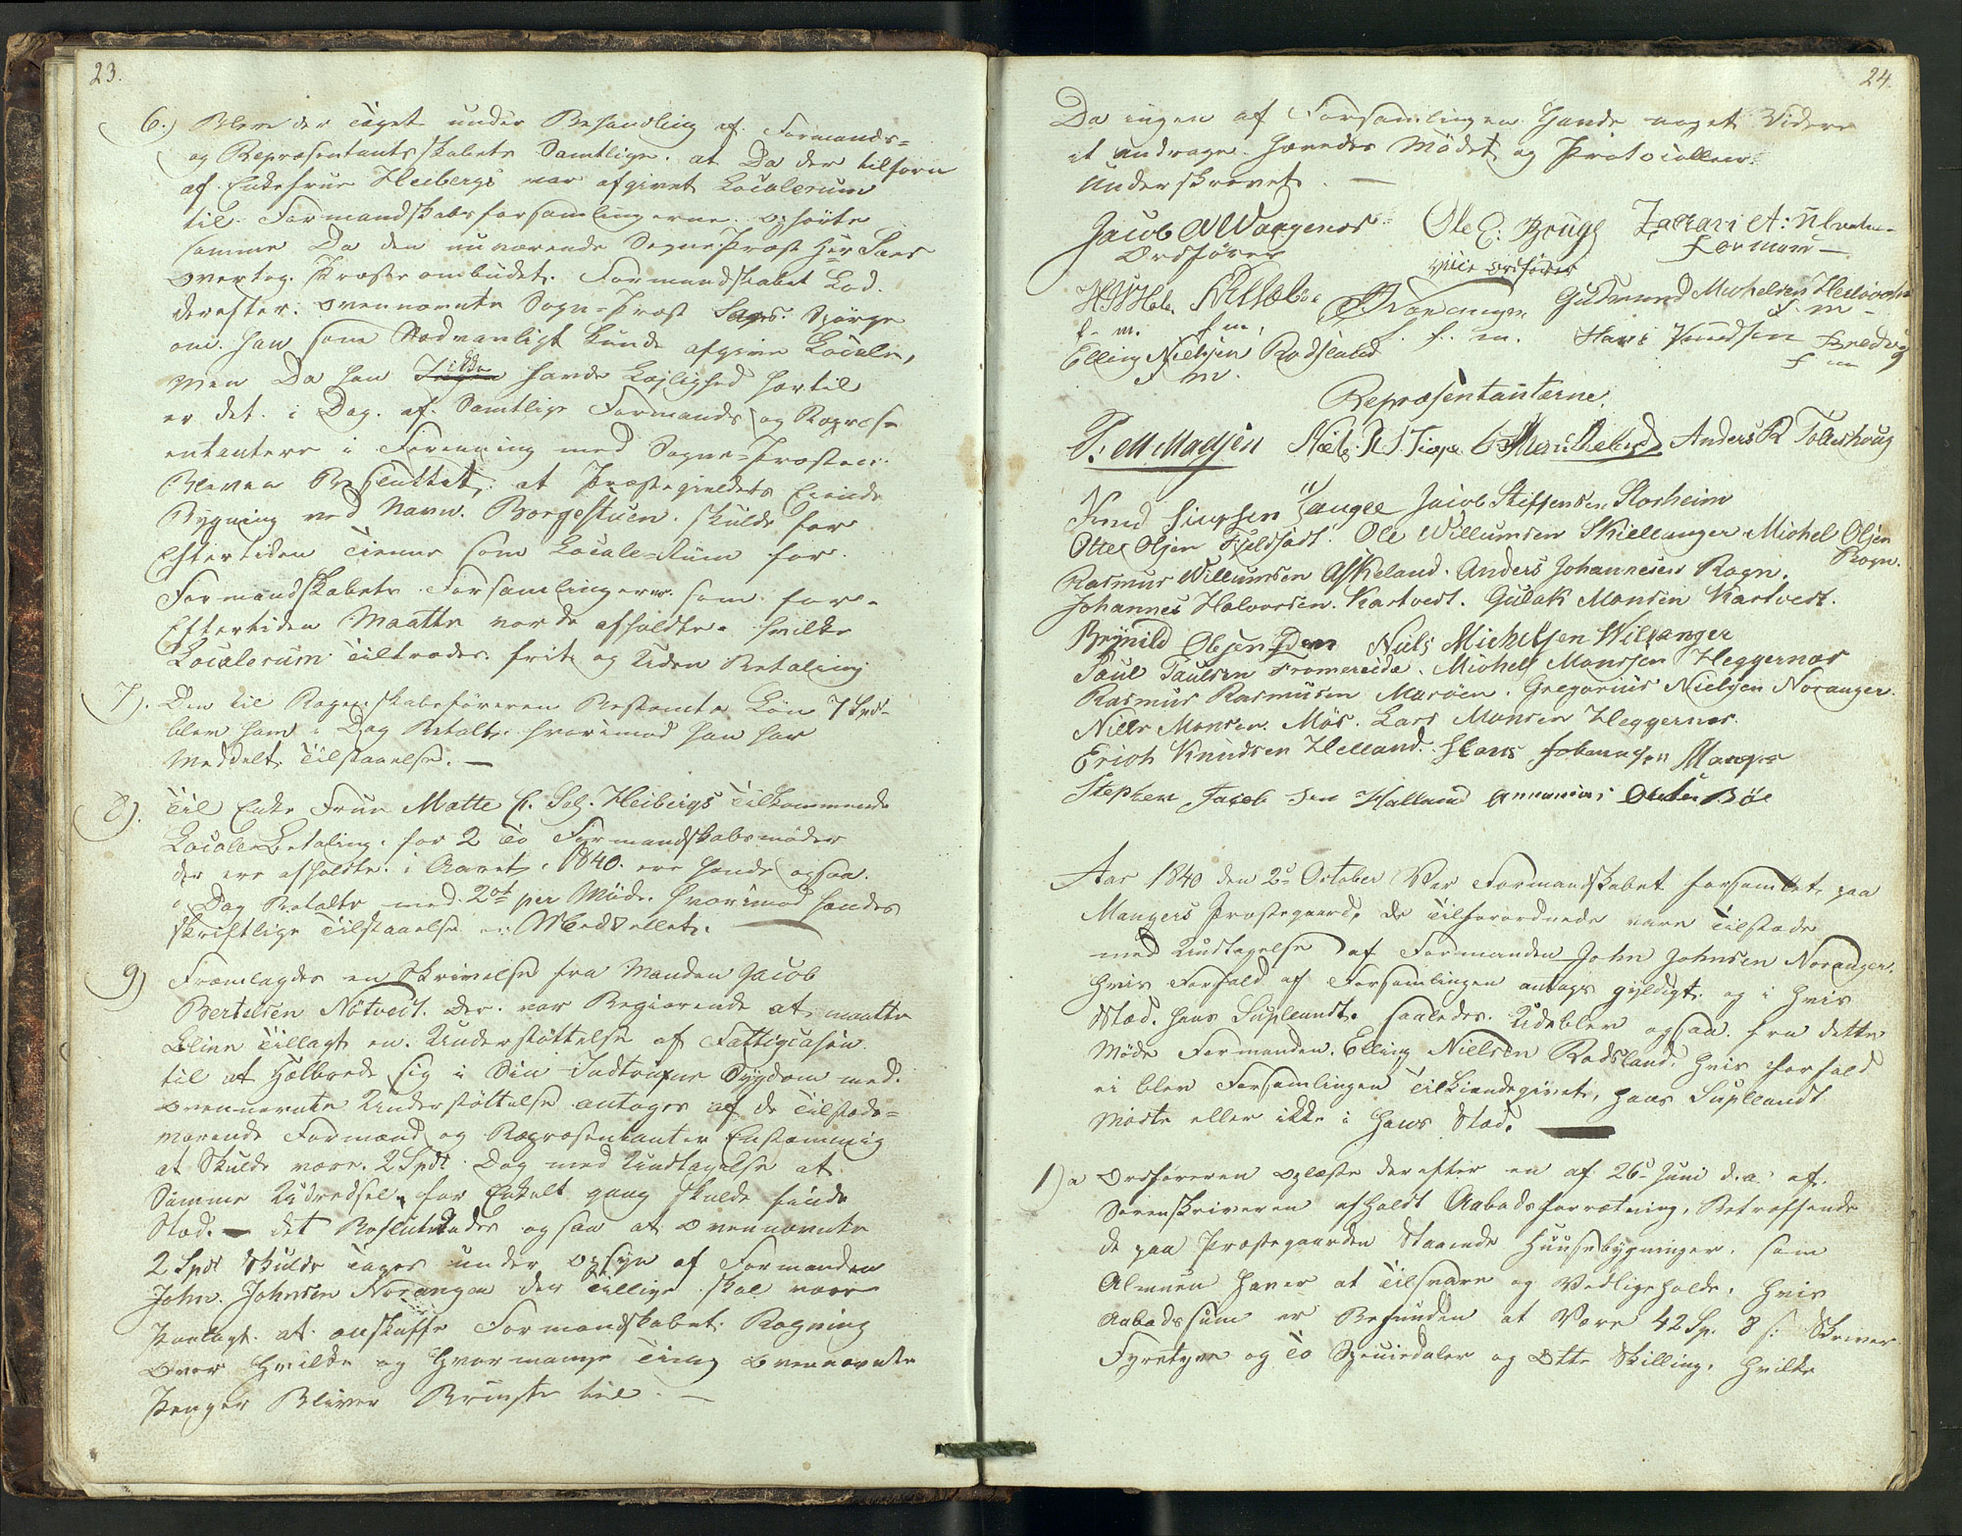 23.
6.) Blev der taget under Behandling af Formands-
og Repræsentantskabets Samtlige, at Da der tilforn
af Enkefrue Heibergs var afgivet Localerum
til Formandskabsforsamlingerne ophørte
samme Da den nuværende Sogne Præst Her Sars
overtog Præsteombudet. Formandskabet Lod
derefter ovennevnte Sogne-Præst Sars Spørge
om han som Sædvanligt kunde afgive Locale,
men Da han ikke havde Lejlighed hertil
er det i Dag af Samtlige Formænds og Repræse
entantere i Forening med Sogne-Præsten
Bleven Besluttet, at Præstegieldets Eiende
Bygning ved Navn Borgestuen skulde for
Eftertiden tiene som Locale-Rum for
Formandskabets Forsamlingerne som for
Eftertiden Maatte vorde afholdte, hvilke
Localerum tiltrædes frit og Uden Betaling
7). Den til Regnskabsføreren Bestemte Løn 7 Spd
blev ham i Dag Betalt, hvorimod han har
Meddelt Tilstaaelse. —
8). Til Enke Frue Mætte S. Sal. Heibergs tilkommende
Locale Betaling for 2 to Formandskabsmøder
der ere afholdte i Aaret 1840 ere hende ogsaa
i Dag Betalte med 2 ort per Møde, hvorimod hendes
skriftlige Tilstaaelse er Meddellet.
9) Fremlagdes en Skrivelse fra Manden Jacob
Bertelsen Nøtvedt der var Begierende at maatte
blive tillagt en Understøttelse af Fattigcasen
til at Helbrede sig i Sin Indtrufne Sygdom med
ovennevnte Understøttelse antoges af de tilstede-
værende Formænd og Repræsentanter Enstemmig
at Skulde være 2 Spdr Dog med Undtagelse at
Samme Udredsel for Enkelt gang skulde finde
Sted. — det Besluttedes ogsaa at ovennevnte
2 Spdr Skulde tages under opsyn af Formanden
John Johnsen Noranger der tillige skal være
Paalagt at anskaffe Formandskabet Regning
over hvilke og hvormange Ting ovennevnte
Penger Bliver Brugte til. —
24.
Da ingen af Forsamlingen havde noget Videre
at andrage hævedes Mødet og Protocollen
Underskrevet. —
Jacob A Waagenes Ole E. Brügh Zakrari A:
Ordfører vice ordfører Formand —
Gudmund Michelsen
f. m. f m, f. m. f. m —
Elling Nielsen Rodsland Hans Knudsen
f m. f m
Repræsentanterne.
P. M Madsen Anders R Tolleshoug
Knud Jacob Steffensen Storheim
Otte Olsen Fieldsadt. Ole Willumsen Skiellanger Michel Olsen
Rogn.
Rasmus Willumsen Askeland. Anders Johannesen Rogn.
Johannes Halvorsen Kartvedt. Gulak Monsen Kartvedt.
Brynild Olsen Niels Michelsen Wilanger
Paul Paulsen Fromereide. Michell Monssen Heggernæs
Rasmus Rasmusen Marøen. Gregorius Nielsen Noranger.
Niels Monsen Møs. Lars Monsen Heggernæs.
Erich Knudsen Helland. Hans Johannesen Manger
Stephen Jacob sen Halland Annanias Olsen Bøe
Aar 1840 den 2d October Var Formandskabet forsamlet paa
Mangers Præstegaard, de Tilforordnede vare tilstede
med Undtagelse af Formanden John Johnsen Noranger,
hvis Forfald af Forsamlingen antoges gyldigt og i hvis
Sted hans Supleandt. saaledes Udeblev ogsaa fra dette
Møde Formanden Elling Nielsen Rodsland, hvis forfald
ei blev Forsamlingen tilkiendegivet, hans Supleandt
Mødte eller ikke i hans Sted.
1) a Ordføreren oplæste derefter en af 26d Juni d.a. af
Sorenskriveren afholdt Aabodsforretning, Betreffende
de paa Præstegaarden Staaende Huusebygninger som
Almuen haver at tilsvare og Vedligeholde, hvis
Aabodssum er Befunden at Være 42 Sp. 8 s: Skriver
Fyretyve og to Speciedaler og Otte Skilling, hvilke